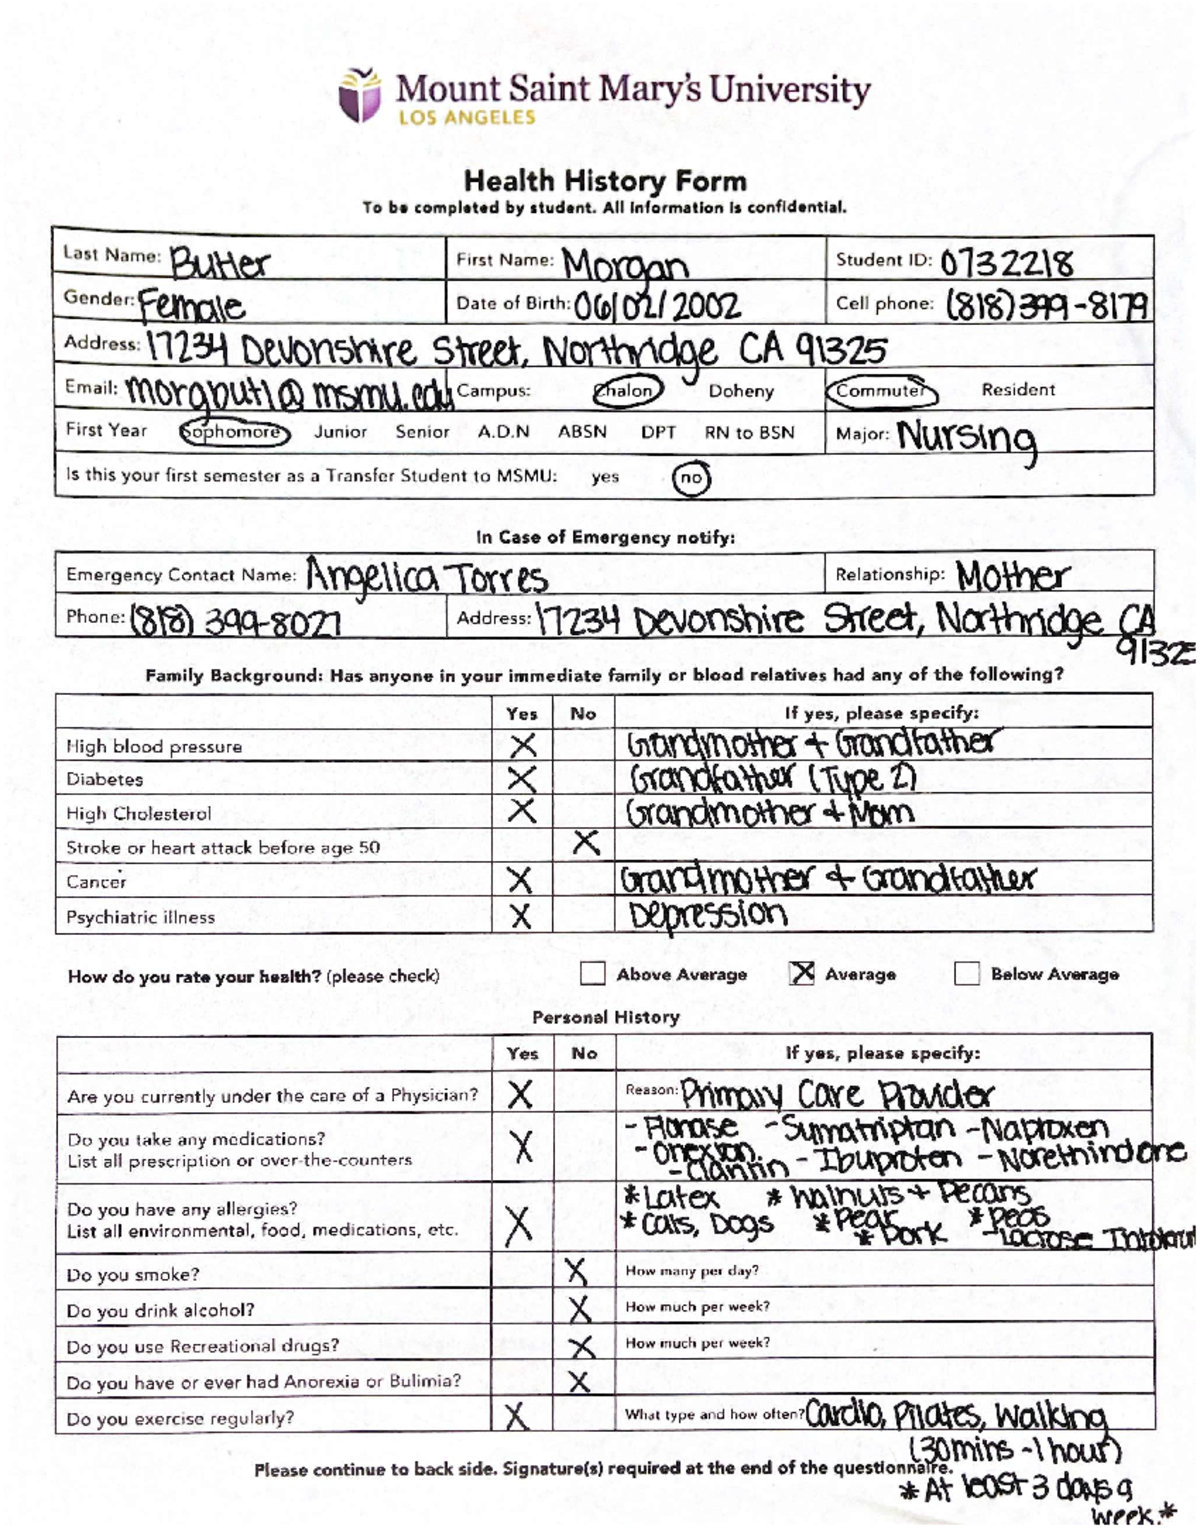 Mount Saint Mary's University
LOS ANGELES
Health History Form
To be completed by student. All information is confidential.
Last Name: Butler First Name: Morgan Student ID: 0732218
Gender: Female Date of Birth: 06/02/2002 Cell phone: (818)399-8179
Address: 17234 Devonshire Street, Northridge CA 91325
Email: morgbut1@msmu.edu Campus: Chalon Doheny Commuter Resident
First Year Sophomore Junior Senior A.D.N ABSN DPT RN to BSN Major: Nursing
Is this your first semester as a Transfer Student to MSMU: yes no
In Case of Emergency notify:
Emergency Contact Name: Angelica Torres Relationship: Mother
Phone: (818) 399-8027 Address: 17234 Devonshire Street, Northridge CA
9132
Family Background: Has anyone in your immediate family or blood relatives had any of the following?
Yes No If yes, please specify:
High blood pressure X Grandmother + Grandfather
Diabetes X Grandfather (Type 2)
High Cholesterol X Grandmother + Mom
Stroke or heart attack before age 50 X
Cancer X Grandmother + Grandfather
Psychiatric illness X Depression
How do you rate your health? (please check) Above Average X Average Below Average
Personal History
Yes No If yes, please specify:
Are you currently under the care of a Physician? X Reason: Primary Care Provider
Do you take any medications? X - Flonase - Sumatriptan - Naproxen
List all prescription or over-the-counters - Onexton. - Ibuprofen - Norethindrone
- Claritin
Do you have any allergies? X * Latex * Walnuts + Pecans
List all environmental, food, medications, etc. * Cats, Dogs * Pear * Peas
* Pork - Lactose
Do you smoke? X How many per day?
Do you drink alcohol? X How much per week?
Do you use Recreational drugs? X How much per week?
Do you have or ever had Anorexia or Bulimia? X
Do you exercise regularly? X What type and how often? Cardio, Pilates, Walking
(30mins - 1 hour)
Please continue to back side. Signature(s) required at the end of the questionnaire.
* At least 3 days a
week.*